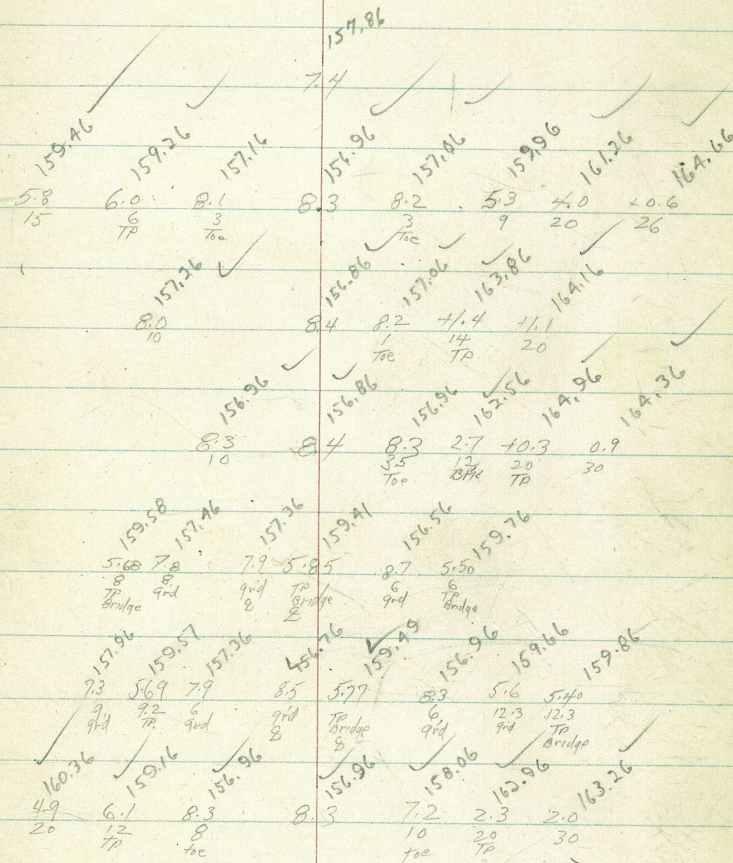 157.86
7.4
159.46 159.26 157.16 156.96 157.06 159.96 161.26 164.66
5.8 6.0 8.1 8.3 8.2 5.3 4.0 +0.6
15 6 3 3 9 20 26
TP Toe Toe
157.26 156.86 157.06 163.86 164.16
8.0 8.4 8.2 +1.4 +1.1
10 1 14 20
Toe TP
156.96 156.86 156.96 162.56 164.96 164.36
8.3 8.4 8.3 2.7 +0.3 0.9
10 3.5 12 20 30
Toe TP
159.58 157.46 157.36 159.41 156.56 159.76
5.68 7.8 7.9 5.85 8.7 5.50
8 8 gr'd TP 6 6
TP grd Bridge grd TP
Bridge Bridge
157.96 159.57 157.36 156.76 159.49 156.96 159.66 159.86
7.3 5.69 7.9 8.5 5.77 8.3 5.6 5.40
9 9.2 6 gr'd TP 6 12.3 12.3
grd TP. gr'd Bridge gr'd grd TP
Bridge
160.36 159.16 156.96 156.96 158.06 162.96 163.26
4.9 6.1 8.3 8.3 7.2 2.3 2.0
20 12 8 10 20 30
TP toe toe TP